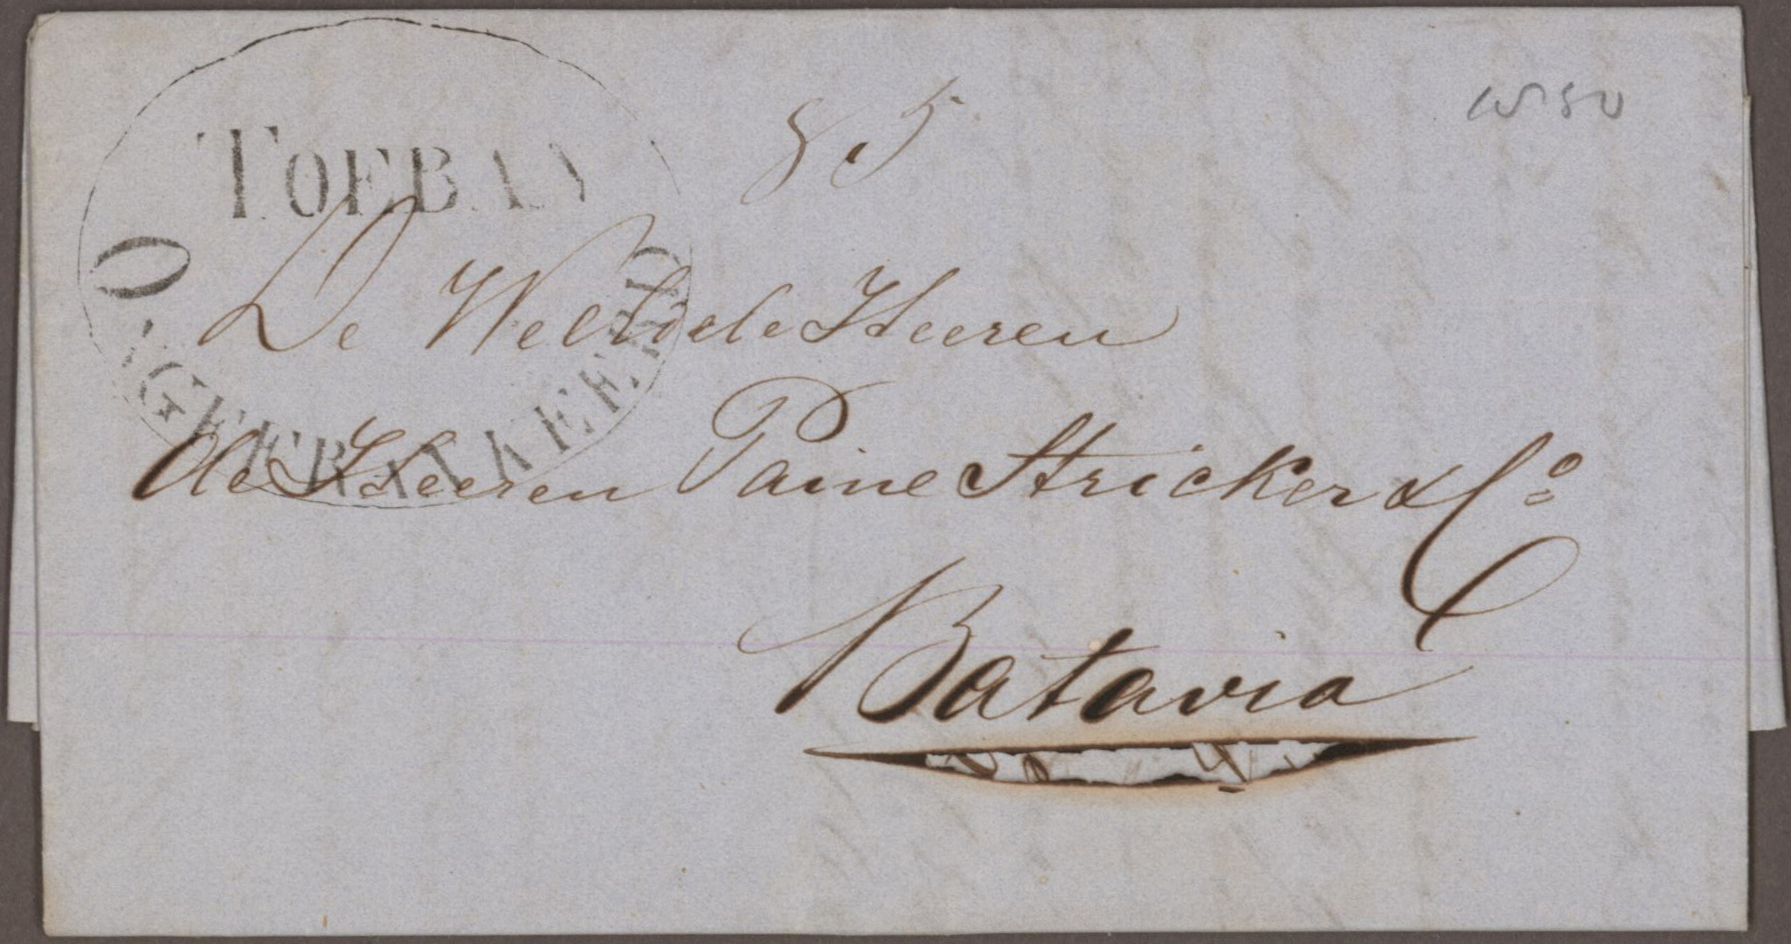 TOEBAN
ONGEFRANKEERD
85
De WelEdele Heeren
de Heeren Paine Stricker & Co
Batavia